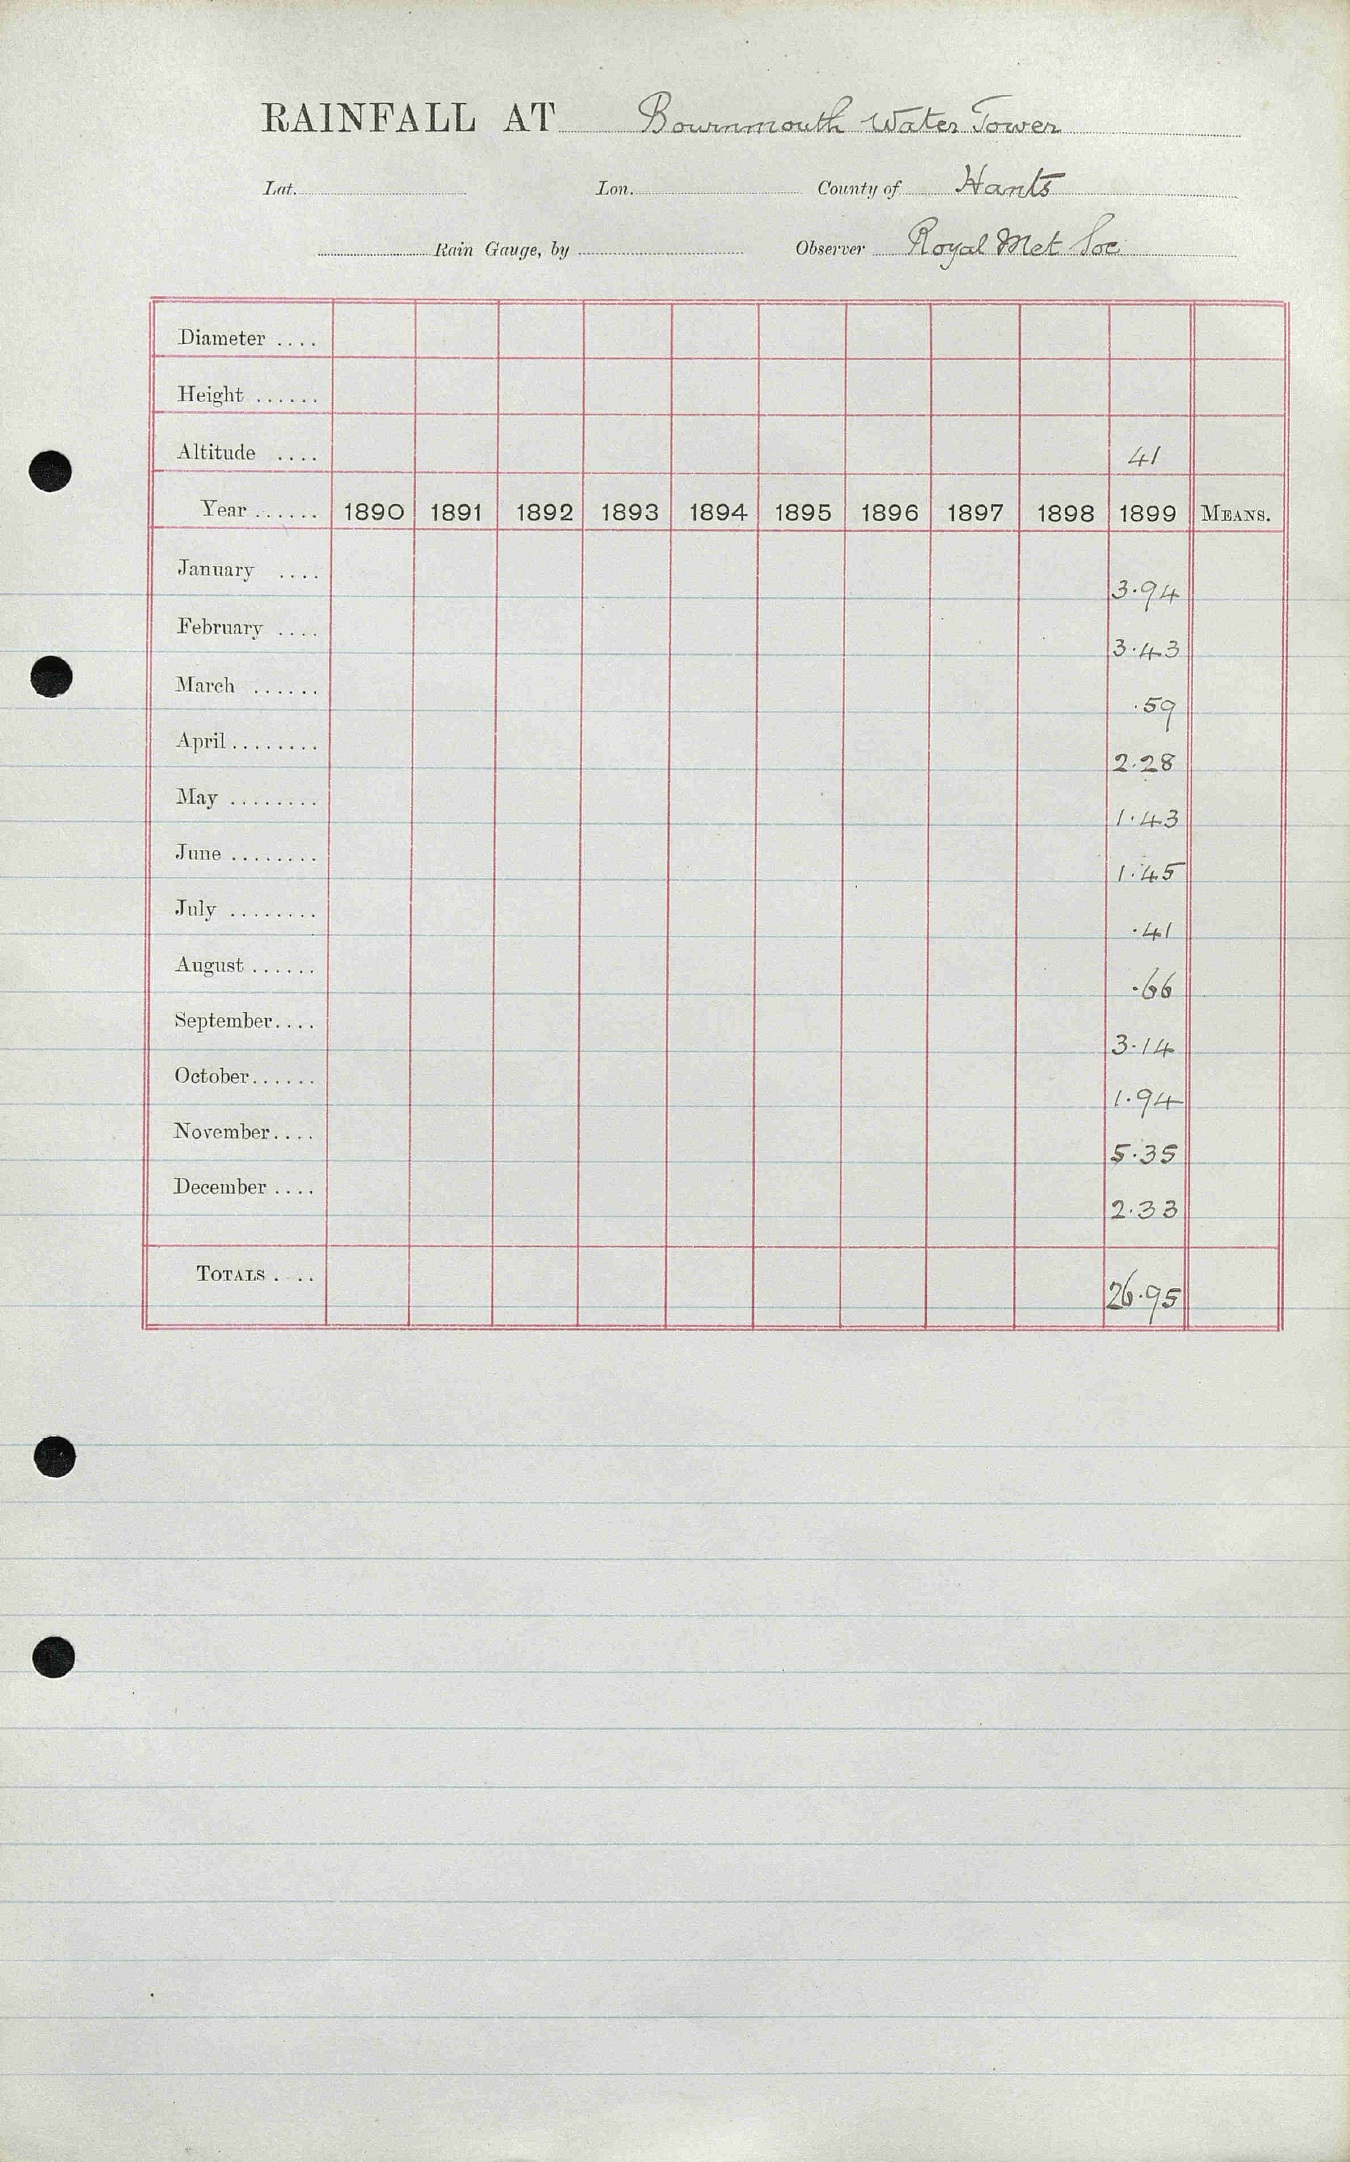 RAINFALL AT Bournmouth Water Tower
Lat. Lon. County of Hants
Rain Gauge, by Observer Royal Met Soc
Diameter ....
Height ......
Altitude .... 41
Year ...... 1890 1891 1892 1893 1894 1895 1896 1897 1898 1899 MEANS.
January .... 3.94
February .... 3.43
March ...... .59
April ........ 2.28
May ........ 1.43
June ........ 1.45
July ........ .41
August ...... .66
September.... 3.14
October...... 1.94
November.... 5.35
December .... 2.33
TOTALS .... 26.95